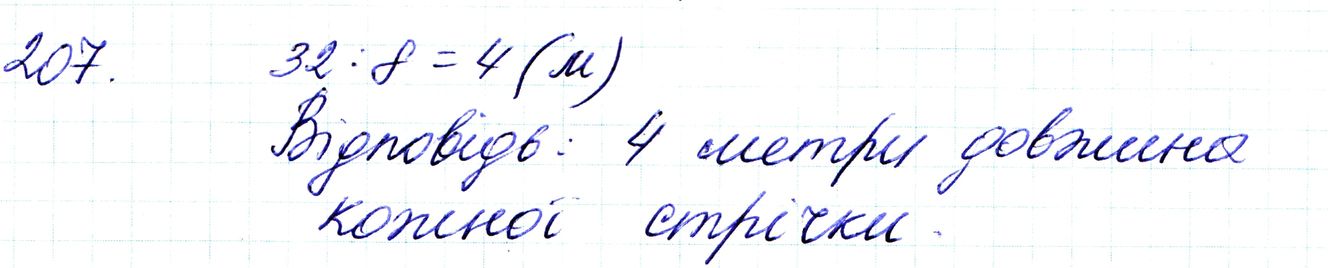 207. 32 : 8 = 4 (м)
Відповідь: 4 метри довжина
кожної стрічки.